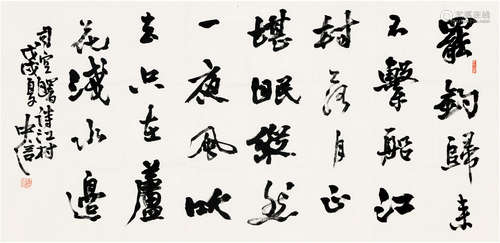 罷釣歸来
不繫船江
村落月正
堪眠縱然
一夜風吹
去只在蘆
花淺水邊
司空曙詩江村
戊戌夏中信